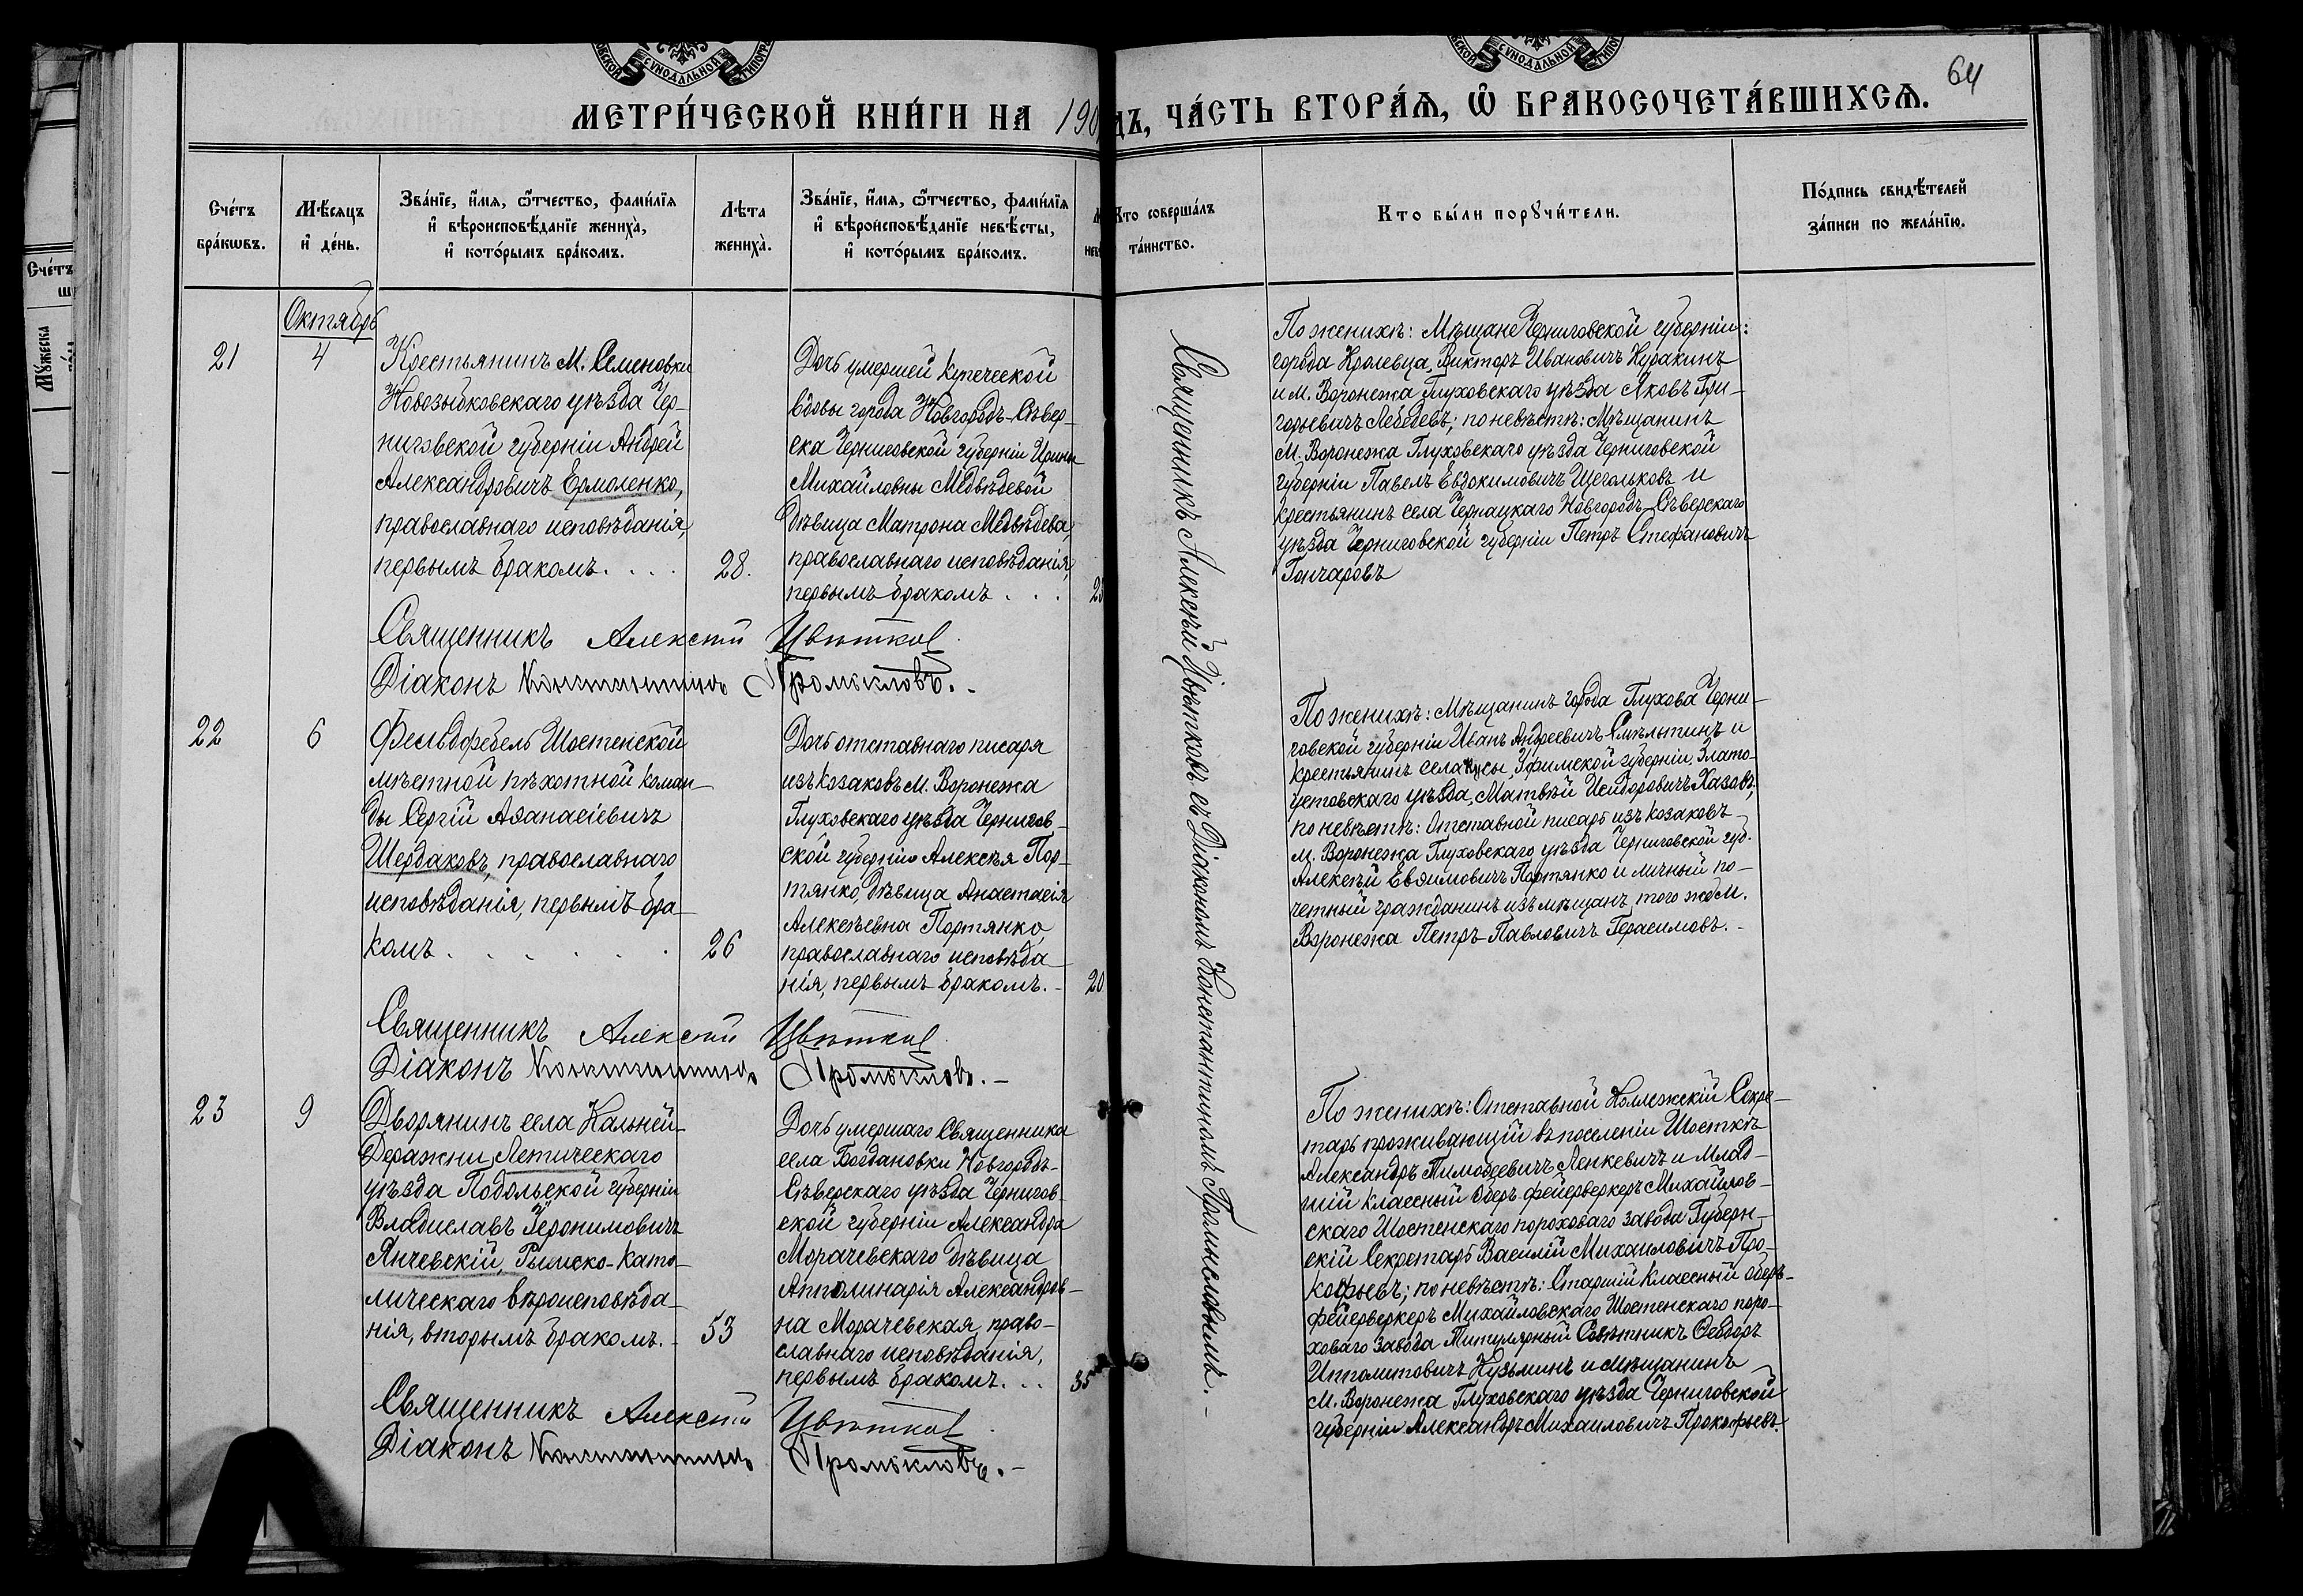 СѴНОДАЛЬНОЙ
СѴНОДАЛЬНОЙ
64
МЕТРИ́ЧЕСКОЙ КНИ́ГИ НА 190
ДЪ, ЧА́СТЬ ВТОРА́Ѧ, Ѽ БРАКОСОЧЕТА́ВШИХСѦ.
Сче́тъ
бра́кѡвъ.
Мѣ́сяцъ
и҆ де́нь.
Зва́нїе, и҆́мя, ѻ҆́тчество, фами́лїя
и҆ вѣроисповѣ́данїе жениха̀,
и҆ кото́рымъ бра́комъ.
Лѣ́та
жениха̀.
Зва́нїе, и҆́мя, ѻ҆́тчество, фами́лїя
и҆ вѣроисповѣ́данїе невѣ́сты,
и҆ кото́рымъ бра́комъ.
Кто соверша́лъ
та́инство.
Кто бы́ли порꙋчи́тели.
По́дпись свидѣ́телей
за́писи по жела́нїю.
Сче́тъ
Октябрь
21
4
Крестьянинъ М. Семеновки
Новозыбковскаго уѣзда Чер-
ниговской губерніи Андрей
Александровичъ Ермоленко,
православнаго исповѣданія,
первымъ бракомъ. . . .
28.
Дочь умершей купеческой
вдовы города Новгородъ-Сѣвер-
ска Черниговской губерніи Ирины
Михайловны Медвѣдевой
дѣвица Матрона Медвѣдева,
православнаго исповѣданія,
первымъ бракомъ . . .
Священникъ Алексѣй Цвѣтков
Діаконъ Константинъ Промысловъ.
По женихѣ: Мѣщане Черниговской губерніи:
города Кролевца, Викторъ Ивановичъ Куракинъ
и М. Воронежа Глуховскаго уѣзда Яковъ Гри-
горьевичъ Лебедевъ; по невѣстѣ: Мѣщанинъ
М. Воронежа Глуховскаго уѣзда Черниговской
губерніи Павелъ Евдокимовичъ Щегольковъ и
крестьянинъ села Чернацкаго Новгородъ-Сѣверскаго
уѣзда Черниговской губерніи Петръ Стефановичъ
Гончаровъ
Священникъ Алексѣй Цвѣтковъ съ Діакономъ Константиномъ Промысловымъ. -
22
6
Фельдфебель Шостенской
мѣстной пѣхотной коман-
ды Сергій Аѳанасіевичъ
Шердаковъ, православнаго
исповѣданія, первымъ бра-
комъ . . . . . .
26
Дочь отставнаго писаря
изъ козаковъ М. Воронежа
Глуховскаго уѣзда Чернигов-
ской губерніи Алексѣя Пор-
тянко, дѣвица Анастасія
Алексѣевна Портянко,
православнаго исповѣда-
нія, первымъ бракомъ. -
20
Священникъ Алексѣй Цвѣтков
Діаконъ Константинъ Промысловъ. -
По женихѣ: Мѣщанинъ города Глухова Черни-
говской губерніи Иванъ Андреевичъ и
крестьянинъ села Кусы, Уфимской губерніи, Злато-
устовскаго уѣзда, Матвѣй Исидоровичъ Хазовъ;
по невѣстѣ: Отставной писарь изъ козаковъ
М. Воронежа Глуховскаго уѣзда Черниговской губ.
Алексѣй Евѳимовичъ Портянко и личный по-
четный гражданинъ изъ мѣщанъ того же М.
Воронежа Петръ Павловичъ Герасимовъ. -
23
9
Дворянинъ села Кальней-
Деражни, Летическаго
уѣзда Подольской губерніи
Владиславъ Іеронимовичъ
Янчевскій, Римско-Като-
лическаго вѣроисповѣда-
нія, вторымъ бракомъ. -
53
Дочь умершаго Священника
села Богдановки Новгородъ-
Сѣверскаго уѣзда Чернигов-
ской губерніи Александра
Морачевскаго дѣвица
Апполинарія Александров-
на Морачевская, право-
славнаго исповѣданія,
первымъ бракомъ. . .
35
Священникъ Алексѣй Цвѣтков
Діаконъ Константинъ Промысловъ. -
По женихѣ: Отставной Коллежскій Секре-
тарь проживающій въ поселеніи Шосткѣ
Александръ Тимоѳеевичъ Ленкевичъ и Млад-
шій классный Оберъ-фейерверкеръ Михайлов-
скаго Шостенскаго пороховаго завода Губерн-
скій Секретарь Василій Михаиловичъ Про-
кофьевъ; по невѣстѣ: Старшій Классный оберъ-
фейерверкеръ Михайловскаго Шостенскаго поро-
ховаго завода Титулярный Совѣтникъ Ѳеодоръ
Ипполитовичъ Кузьминъ и мѣщанинъ
М. Воронежа Глуховскаго уѣзда Черниговской
губерніи Александръ Михаиловичъ Прокофьевъ.